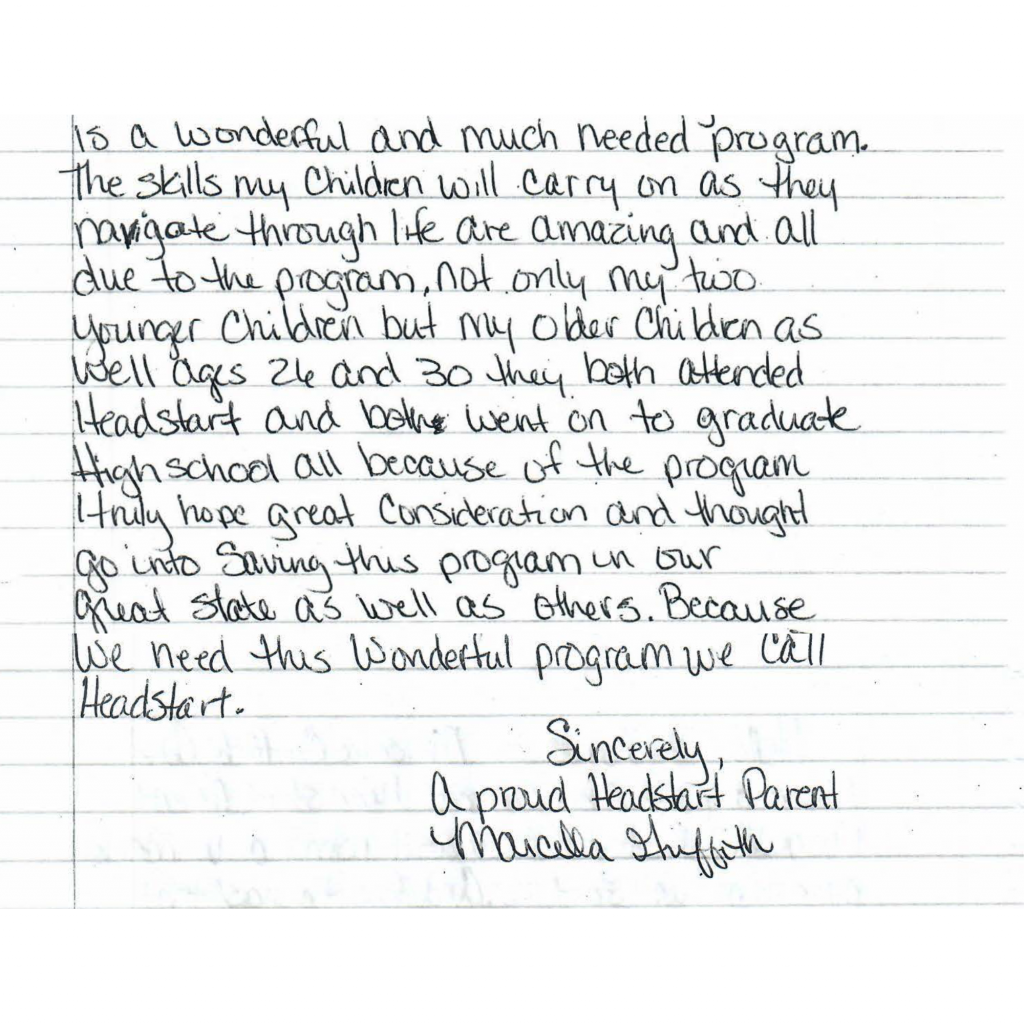 is a wonderful and much needed program.
The skills my Children will carry on as they
navigate through life are amazing and all
due to the program, not only my two
younger Children but my older Children as
well ages 26 and 30 they both attended
Headstart and both went on to graduate
High school all because of the program
I truly hope great Consideration and thought
go into Saving this program in our
great state as well as others. Because
We need this Wonderful program we Call
Headstart.
Sincerely,
A proud Headstart Parent
Marcella Griffith